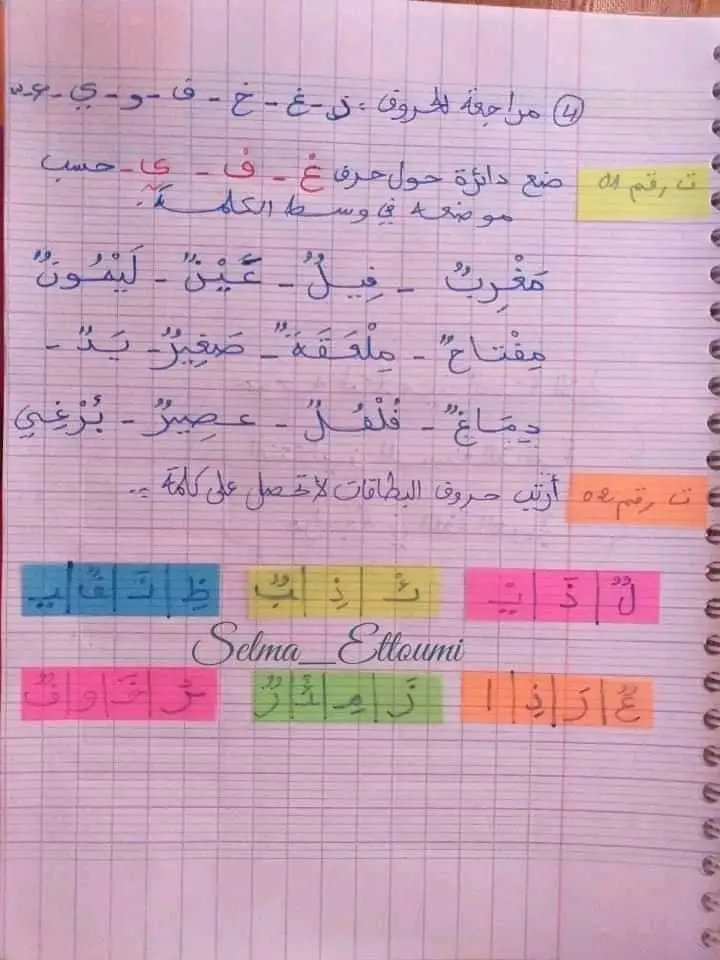 ④ مراجعة لحروف : ز - غ - خ - ف - و - ي - ء
ت رقم 01 ضع دائرة حول حرف غ - ف - ي - حسب
موضعه في وسط الكلمة.
مَغْرِبٌ - فِيلٌ - عَيْنٌ - لَيْمُونٌ
مِفْتاحٌ - مِلْعَقَةٌ - صَغِيرٌ - يَدٌ -
دِمَاغٌ - فُلْفُلٌ - عصِيرٌ - بُرْغِي
ت رقم 02 أرتب حروف البطاقات لأتحصل على كلمة :
لٌ ذَ يْ ئْ ذِ بٌ ظِ نَ فٌ ي
Selma_Ettoumi
عٌ رَ ذِ ا خَ و فٌ